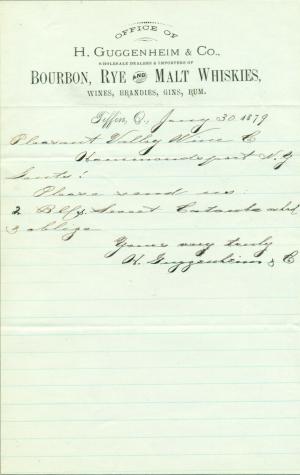 OFFICE OF
H. GUGGENHEIM & CO.,
WHOLESALE DEALERS & IMPORTERS OF
BOURBON, RYE AND MALT WHISKIES,
WINES, BRANDIES, GINS, RUM.
Tiffin, O., Jany 30 1879
Pleasant Valley Wine C.
Hammondsport N.Y
Gents:
Please send us
2 Bbls Sweet Catawba
& oblige
Yours very truly
H. Guggenheim & C